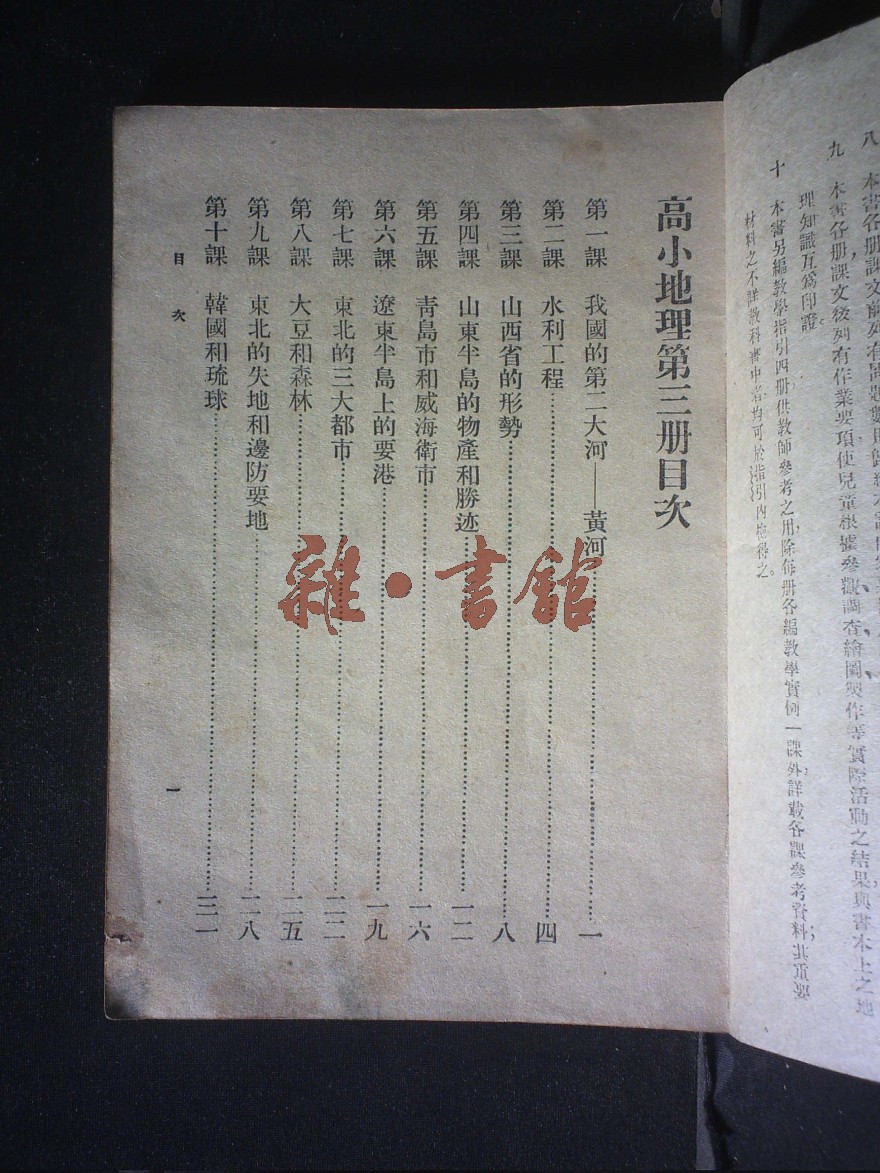 八　本書各册課文前列有問題數則
九　本書各册課文後列有作業要項，使兒童根據參觀調查繪圖製作等實際活動之結果，與書本上之地
理知識互爲印證。
十　本書另編教學指引四册，供教師參考之用，除每册各編教學實例一課外，詳載各課參考資料；其重要
材料之不詳教科書中者，均可於指引內檢得之。
高小地理第三册目次
第一課　我國的第二大河——黃河……一
第二課　水利工程……四
第三課　山西省的形勢……八
第四課　山東半島的物產和勝迹……一二
第五課　青島市和威海衛市……一六
第六課　遼東半島上的要港……一九
第七課　東北的三大都市……二二
第八課　大豆和森林……二五
第九課　東北的失地和邊防要地……二八
第十課　韓國和琉球……三一
目次　一
雜·書館